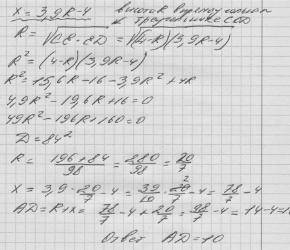 x = 3,9R-4 высота в прямоугольном
треугольнике COD
R = √CE·ED = √(4-R)(3,9R-4)
R² = (4-R)(3,9R-4)
R² = 15,6R-16-3,9R²+4R
4,9R²-19,6R+16=0
49R²-196R+160=0
D=84²
R = 196+84/98 = 280/98 = 20/7
x = 3,9·20/7-4 = 39/10·20/7-4 = 78/7-4
AD=R+x= 78/7-4+20/7 = 98/7-4=14-4=10
Ответ AD=10